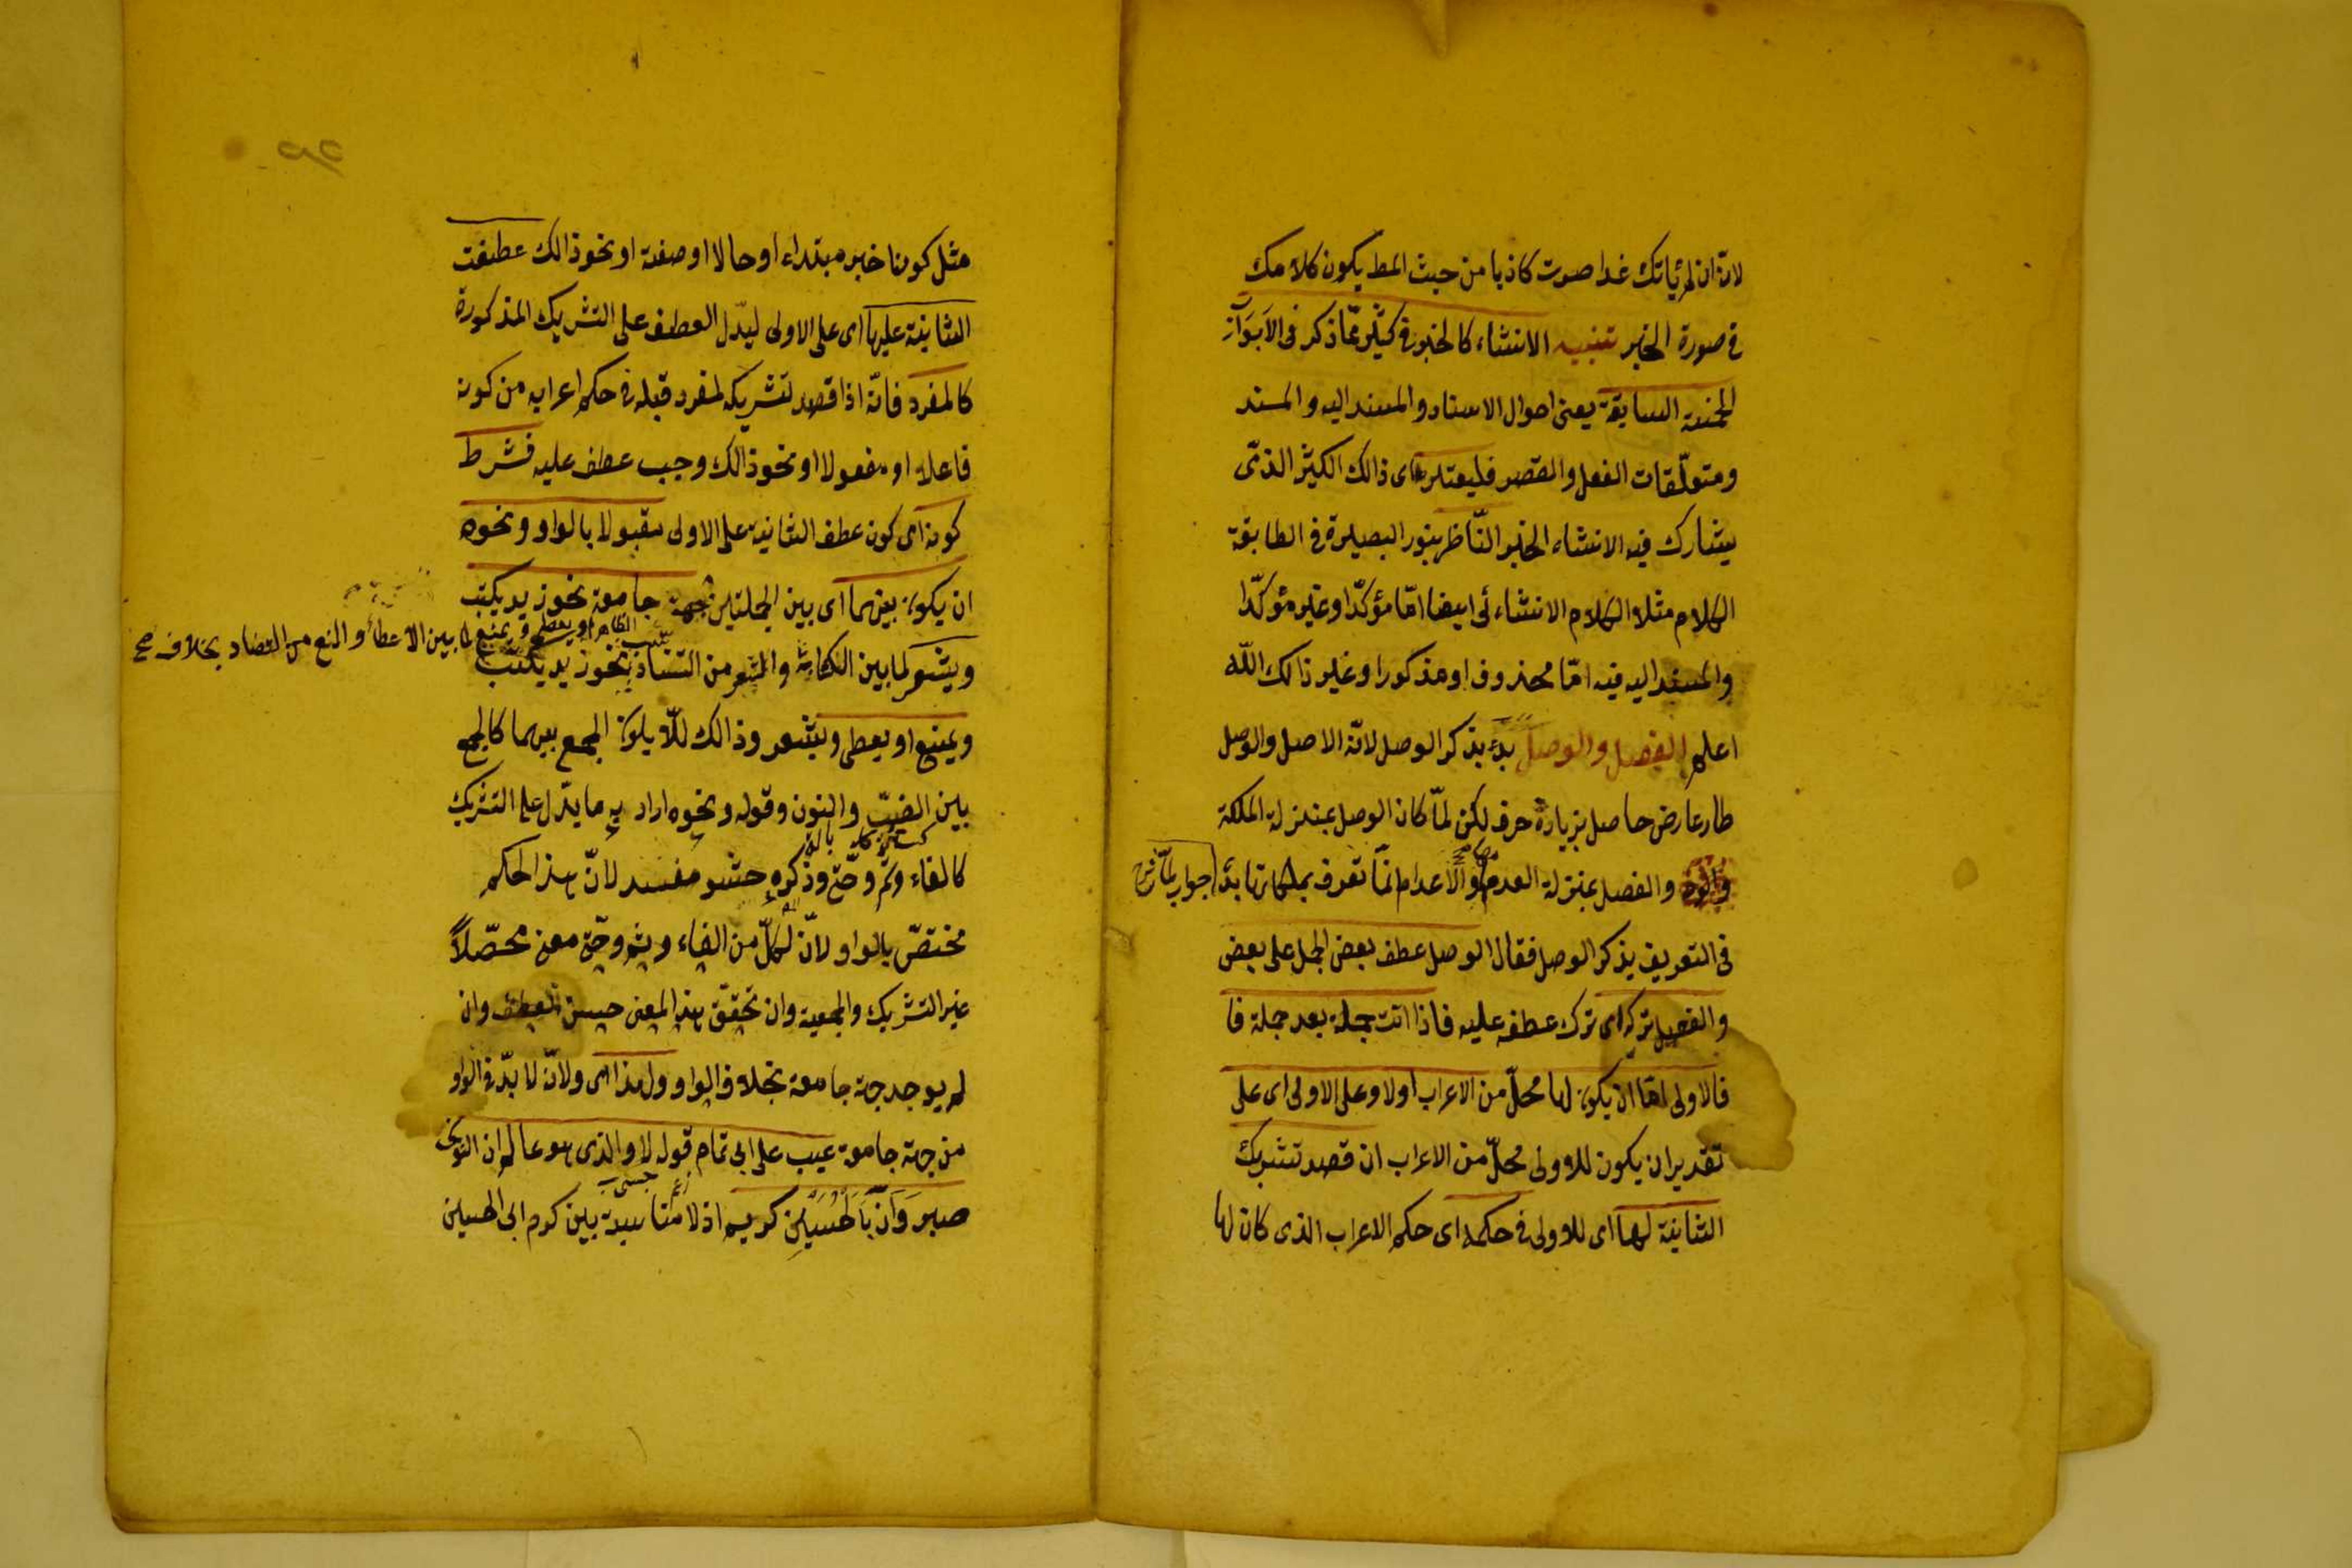 لانه ان لم يأتك غدا صرت كاذبا من حيث الظ يكون كلامك
في صورة الخبر تنبيه الانشاء كالخبر في كثير ممّا ذكر في الابواب
الخمسة السابقة يعنى احوال الاسناد والمسند اليه والمسند
ومتعلّقات الفعل والقصر فليعتبر اى ذالك الكثير الذى
يشارك فيه الانشاء الخبر النّاظر بنور البصيرة في الطابقة
الكلام مثلا الكلام الانشاء ئى ايضا امّا مؤكدّا او غير مؤكدّا
والمسند اليه فيه امّا محذوف او مذكورا وغير ذالك اللّه
اعلم الفصل والوصل بدء بذكر الوصل لانّه الاصل والوصل
طار عارض حاصل بزيادة حرف لكن لمّا كان الوصل بمنزلة الملكة
والفصل بمنزلة العدم والأعدام انّما تعرف بملكاتها بدأ جواب لمّا
فى التعريف بذكر الوصل فقال الوصل عطف بعض الجمل على بعض
والفصل تركه اى ترك عطفه عليه فاذا اتت جملة بعد جملة فا
فالاولى امّا ان يكون لها محلّ من الاعراب اولا وعلى الاولى اى على
تقدير ان يكون للاولى محلّ من الاعراب ان قصد تشريك
الثانية لها اى للاولى في حكمه اى حكم الاعراب الذى كان لها
مثل كونها خبر مبتداء او حالا او صفة او نحو ذالك عطفت
الثانية عليها اى على الاولى ليدّل العطف على التشريك المذكورة
كالمفرد فانّه اذا قصد تشريكه لمفرد قبله في حكم اعرابه من كونه
فاعلا او مفعولا او نحو ذالك وجب عطف عليه فشرط
كونه اى كون عطف الثانية على الاولى مقبولا بالواو ونحوه
ان يكون بينهما اى بين الجملتين جهة جامعة نحو زيد يكتب
ويشعر لما بين الكتابة والشعر من التناسب الظاهر او يعطى ويمنع لما بين الاعطاء والمنع من التضاد بخلاف صح
نحو زيد يكتب
ويمنع او يعطى ويشعر وذالك للّا يكون الجمع بينهما كالجمع
بين الضبّ والنون وقوله ونحوه اراد به ما يدّل على التشريك
كالفاء وثم وحتّى وذكره حشو مفسد لانّ هذا الحكم
مختصّ بالواو لانّ لكلّ من الفاء وثم وحتّى معنى محصّلاً
غير التشريك والجمعية وان تحقّق هذا المعنى حسن العطف وان
لم يوجد جهة جامعة بخلاف الواو ولهذا اى ولانّه لا بدّ في الواو
من جهة جامعة عيب على ابى تمام قوله لا والذى هو عالم ان النوى
صبر وَانّ أبَا الحُسَيْنِ كريم اذ لا مناسبة بين كرم ابى الحسين